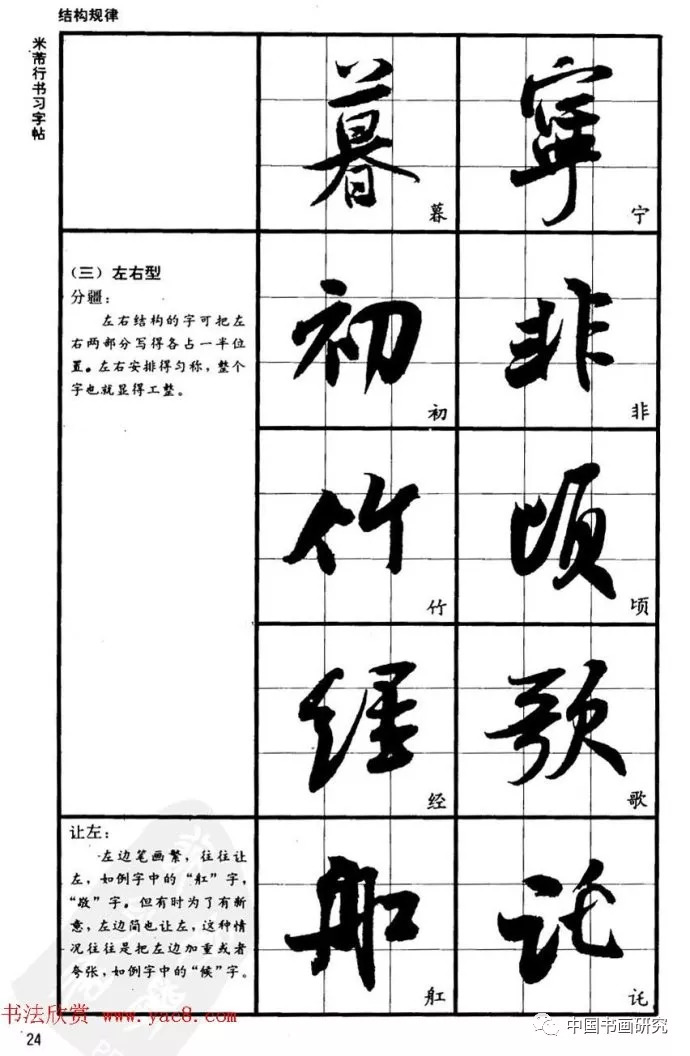 结构规律
米芾行书习字帖
暮
宁
(三) 左右型
分疆:
左右结构的字可把左
右两部分写得各占一半位
置。左右安排得匀称,整个
字也就显得工整。
初
非
竹
顷
经
歌
让左:
左边笔画繁,往往让
左,如例字中的“舡”字,
“敬”字。但有时为了有新
意,左边简也让左,这种情
况往往是把左边加重或者
夸张,如例字中的“候”字。
舡
讬
书法欣赏 www.yac8.com
中国书画研究
24